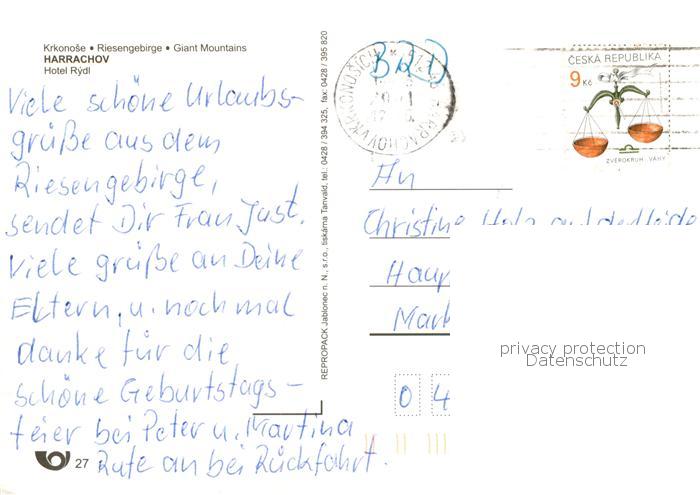 Krkonoše • Riesengebirge • Giant Mountains
HARRACHOV
Hotel Rýdl
Viele schöne Urlaubs-
grüße aus dem
Riesengebirge,
sendet Dir Frau Just.
Viele grüße an Deine
Eltern, u. noch mal
danke für die
schöne Geburtstags-
feier bei Peter u. Martina
Rufe an bei Rückfahrt.
27
REPROPACK Jablonec n. N., s.r.o., tiskárna Tanvald, tel.: 0428 / 394 325, fax: 0428 / 395 820
BRD
HARRACHOV V KRKONOŠÍCH
ČESKÁ REPUBLIKA
9 Kč
ZVĚROKRUH - VÁHY
An
Christine
Haup
Mark
privacy protection
Datenschutz
0 4